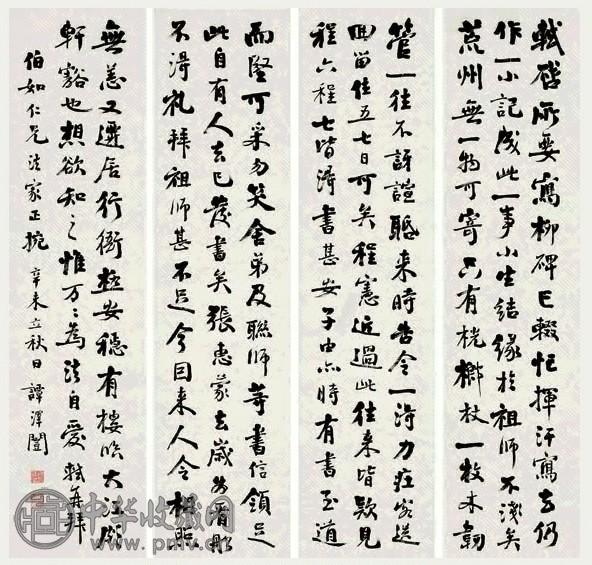 軾啓所要寫柳碑已輟忙揮汗寫出仍
作一小記成此一事小生結緣於祖師不淺矣
荒州無一物可寄只有桄榔杖一枚木韌
管一往不訝諠聒来時告令一得力莊客送
囬留住五七日可矣程憲近過此往来皆款見
程六程七皆得書甚安子由亦時有書至道
而堅可采勿笑舍弟及聰師等書信領足
此自有人去已發書矣張惠蒙去歲為看船
不得礼拜祖師甚不足今因来人令 照
無恙又遷居行衙極安穩有樓臨大江
軒豁也想欲知之惟万万為法自愛軾再拜
伯如仁兄法家正捥 辛未立秋日 譚澤闓
中华收藏网
www.pmv.cn